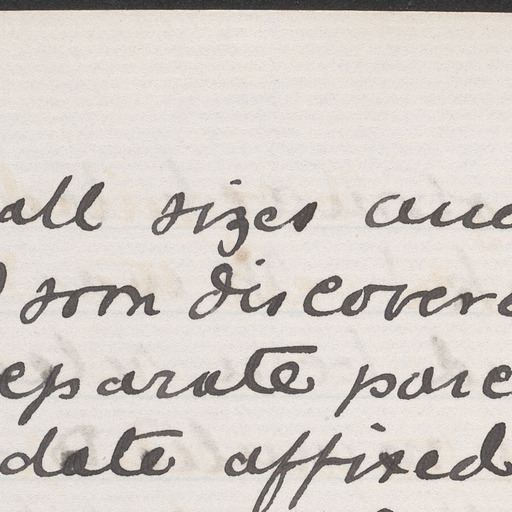 all sizes and
soon discovere
eparate parc
date affixed